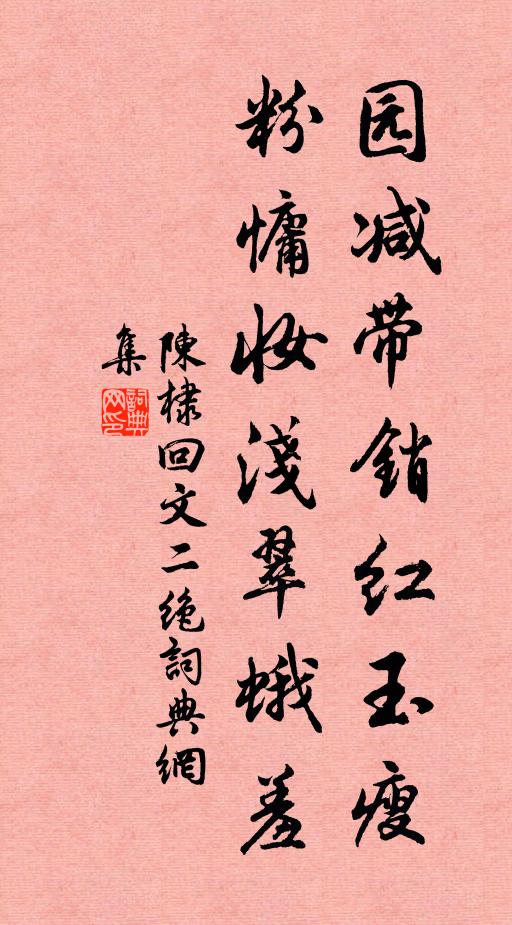 园减带销红玉瘦
粉慵妆浅翠蛾羞
陳棣回文二绝詞典網
集
詞典
网印